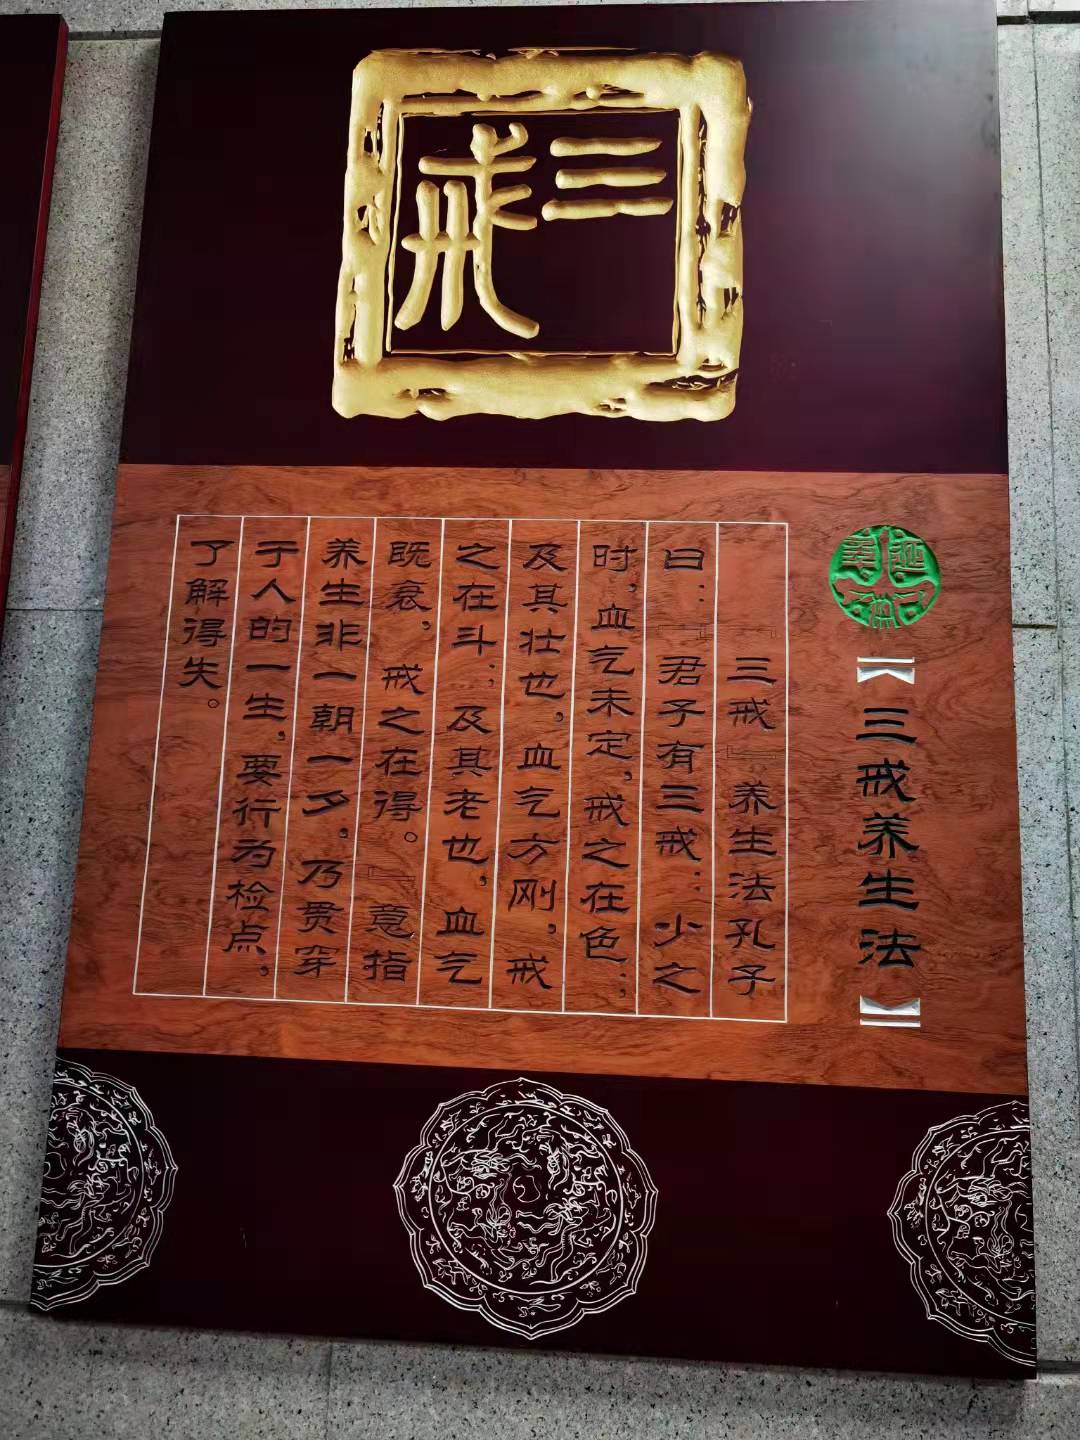 三戒
【三戒养生法】
『三戒』养生法孔子
曰：『君子有三戒：少之
时，血气未定，戒之在色；
及其壮也，血气方刚，戒
之在斗；及其老也，血气
既衰，戒之在得。』意指
养生非一朝一夕，乃贯穿
于人的一生，要行为检点，
了解得失。